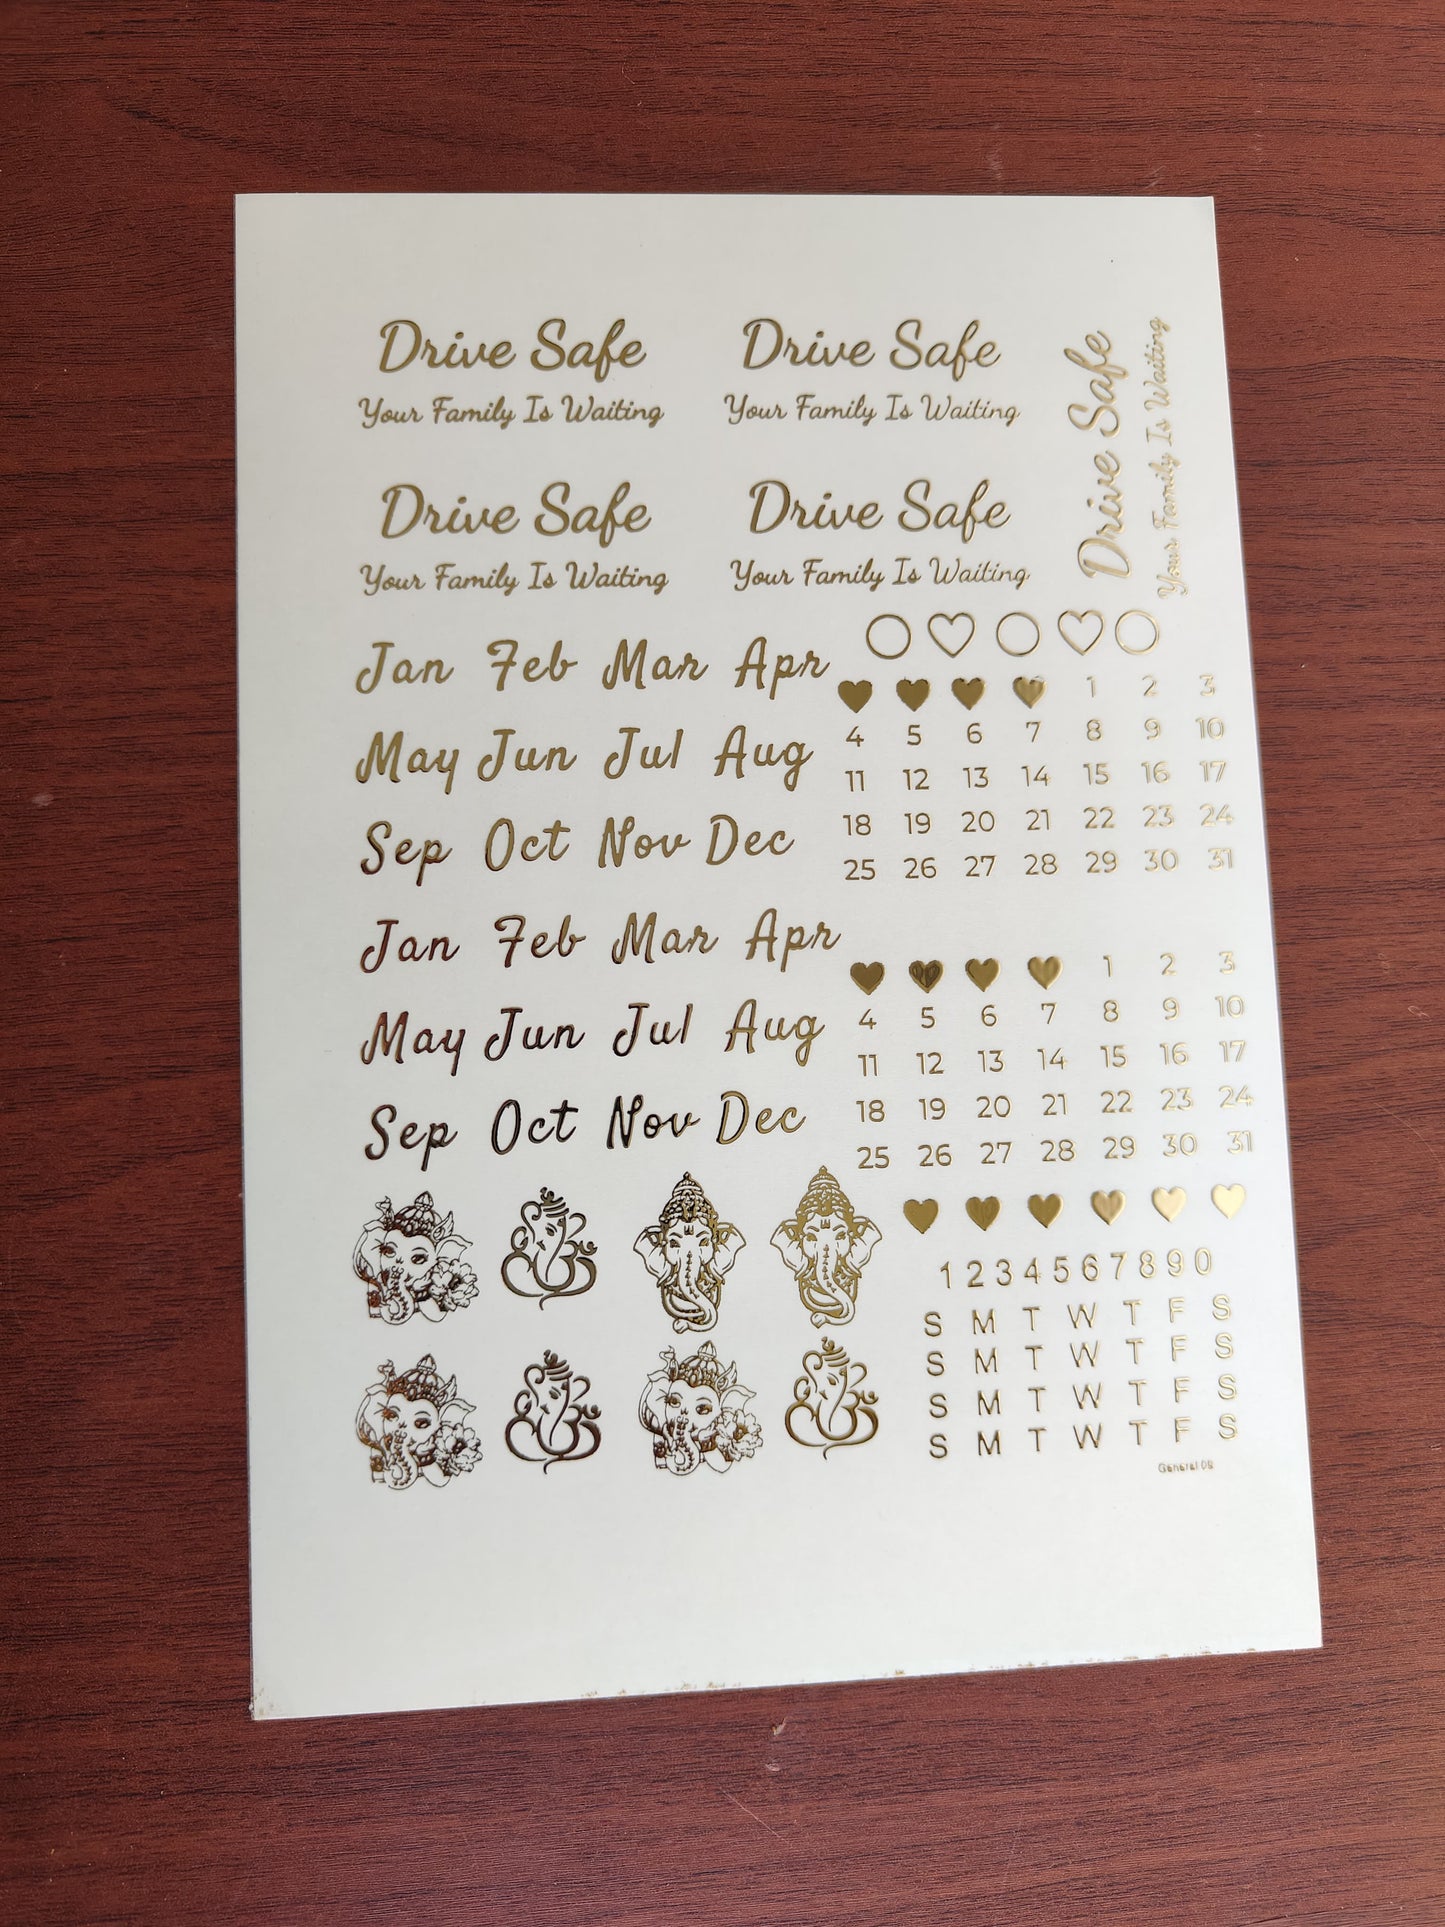 Drive Safe
Your Family Is Waiting
Drive Safe
Your Family Is Waiting
Drive Safe
Your Family Is Waiting
Drive Safe
Your Family Is Waiting
Drive Safe
Your Family Is Waiting
Jan Feb Mar Apr
May Jun Jul Aug
Sep Oct Nov Dec
1 2 3
4 5 6 7 8 9 10
11 12 13 14 15 16 17
18 19 20 21 22 23 24
25 26 27 28 29 30 31
Jan Feb Mar Apr
May Jun Jul Aug
Sep Oct Nov Dec
1 2 3
4 5 6 7 8 9 10
11 12 13 14 15 16 17
18 19 20 21 22 23 24
25 26 27 28 29 30 31
1 2 3 4 5 6 7 8 9 0
S M T W T F S
S M T W T F S
S M T W T F S
S M T W T F S
General 09